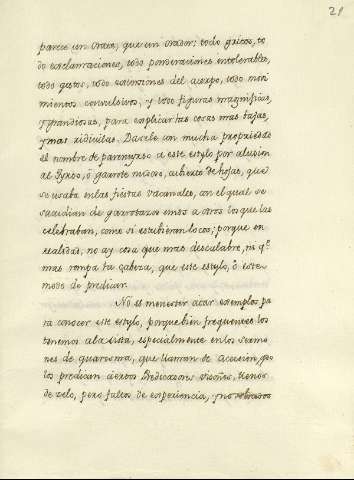 29
parece un Orate, que un orador; todo gritos, to
do exclamaciones, todo ponderaciones intolerables,
todo gestos, todo extorsiones del cuerpo, todo movi
mientos convulsivos, y todo figuras magnificas,
y grandiosas, para explicar las cosas mas bajas,
y mas ridiculas. Dasele con mucha propriedad
el nombre de parenryrso a este estylo por alusion
al tyrso, ô garrote ñudoso, cubierto de hojas, que
se usaba en las fiestas vacanales, con el qual se
sacudian de garrotazos unos a otros los que las
celebraban, como si estubieran locos; porque en
realidad, no ay cosa que mas descalabre, ni qe
mas rompa la cabeza, que este estylo, ô este
modo de predicar.
No es menester sacar exemplos pa
ra conocer este estylo, porque bien frequentes los
tenemos a la vista, especialmente en los sermo
nes de quaresma, que llaman de accion, qdo
los predican ciertos Predicadores visoños, llenos
de zelo, pero faltos de experiencia, y no sobrados